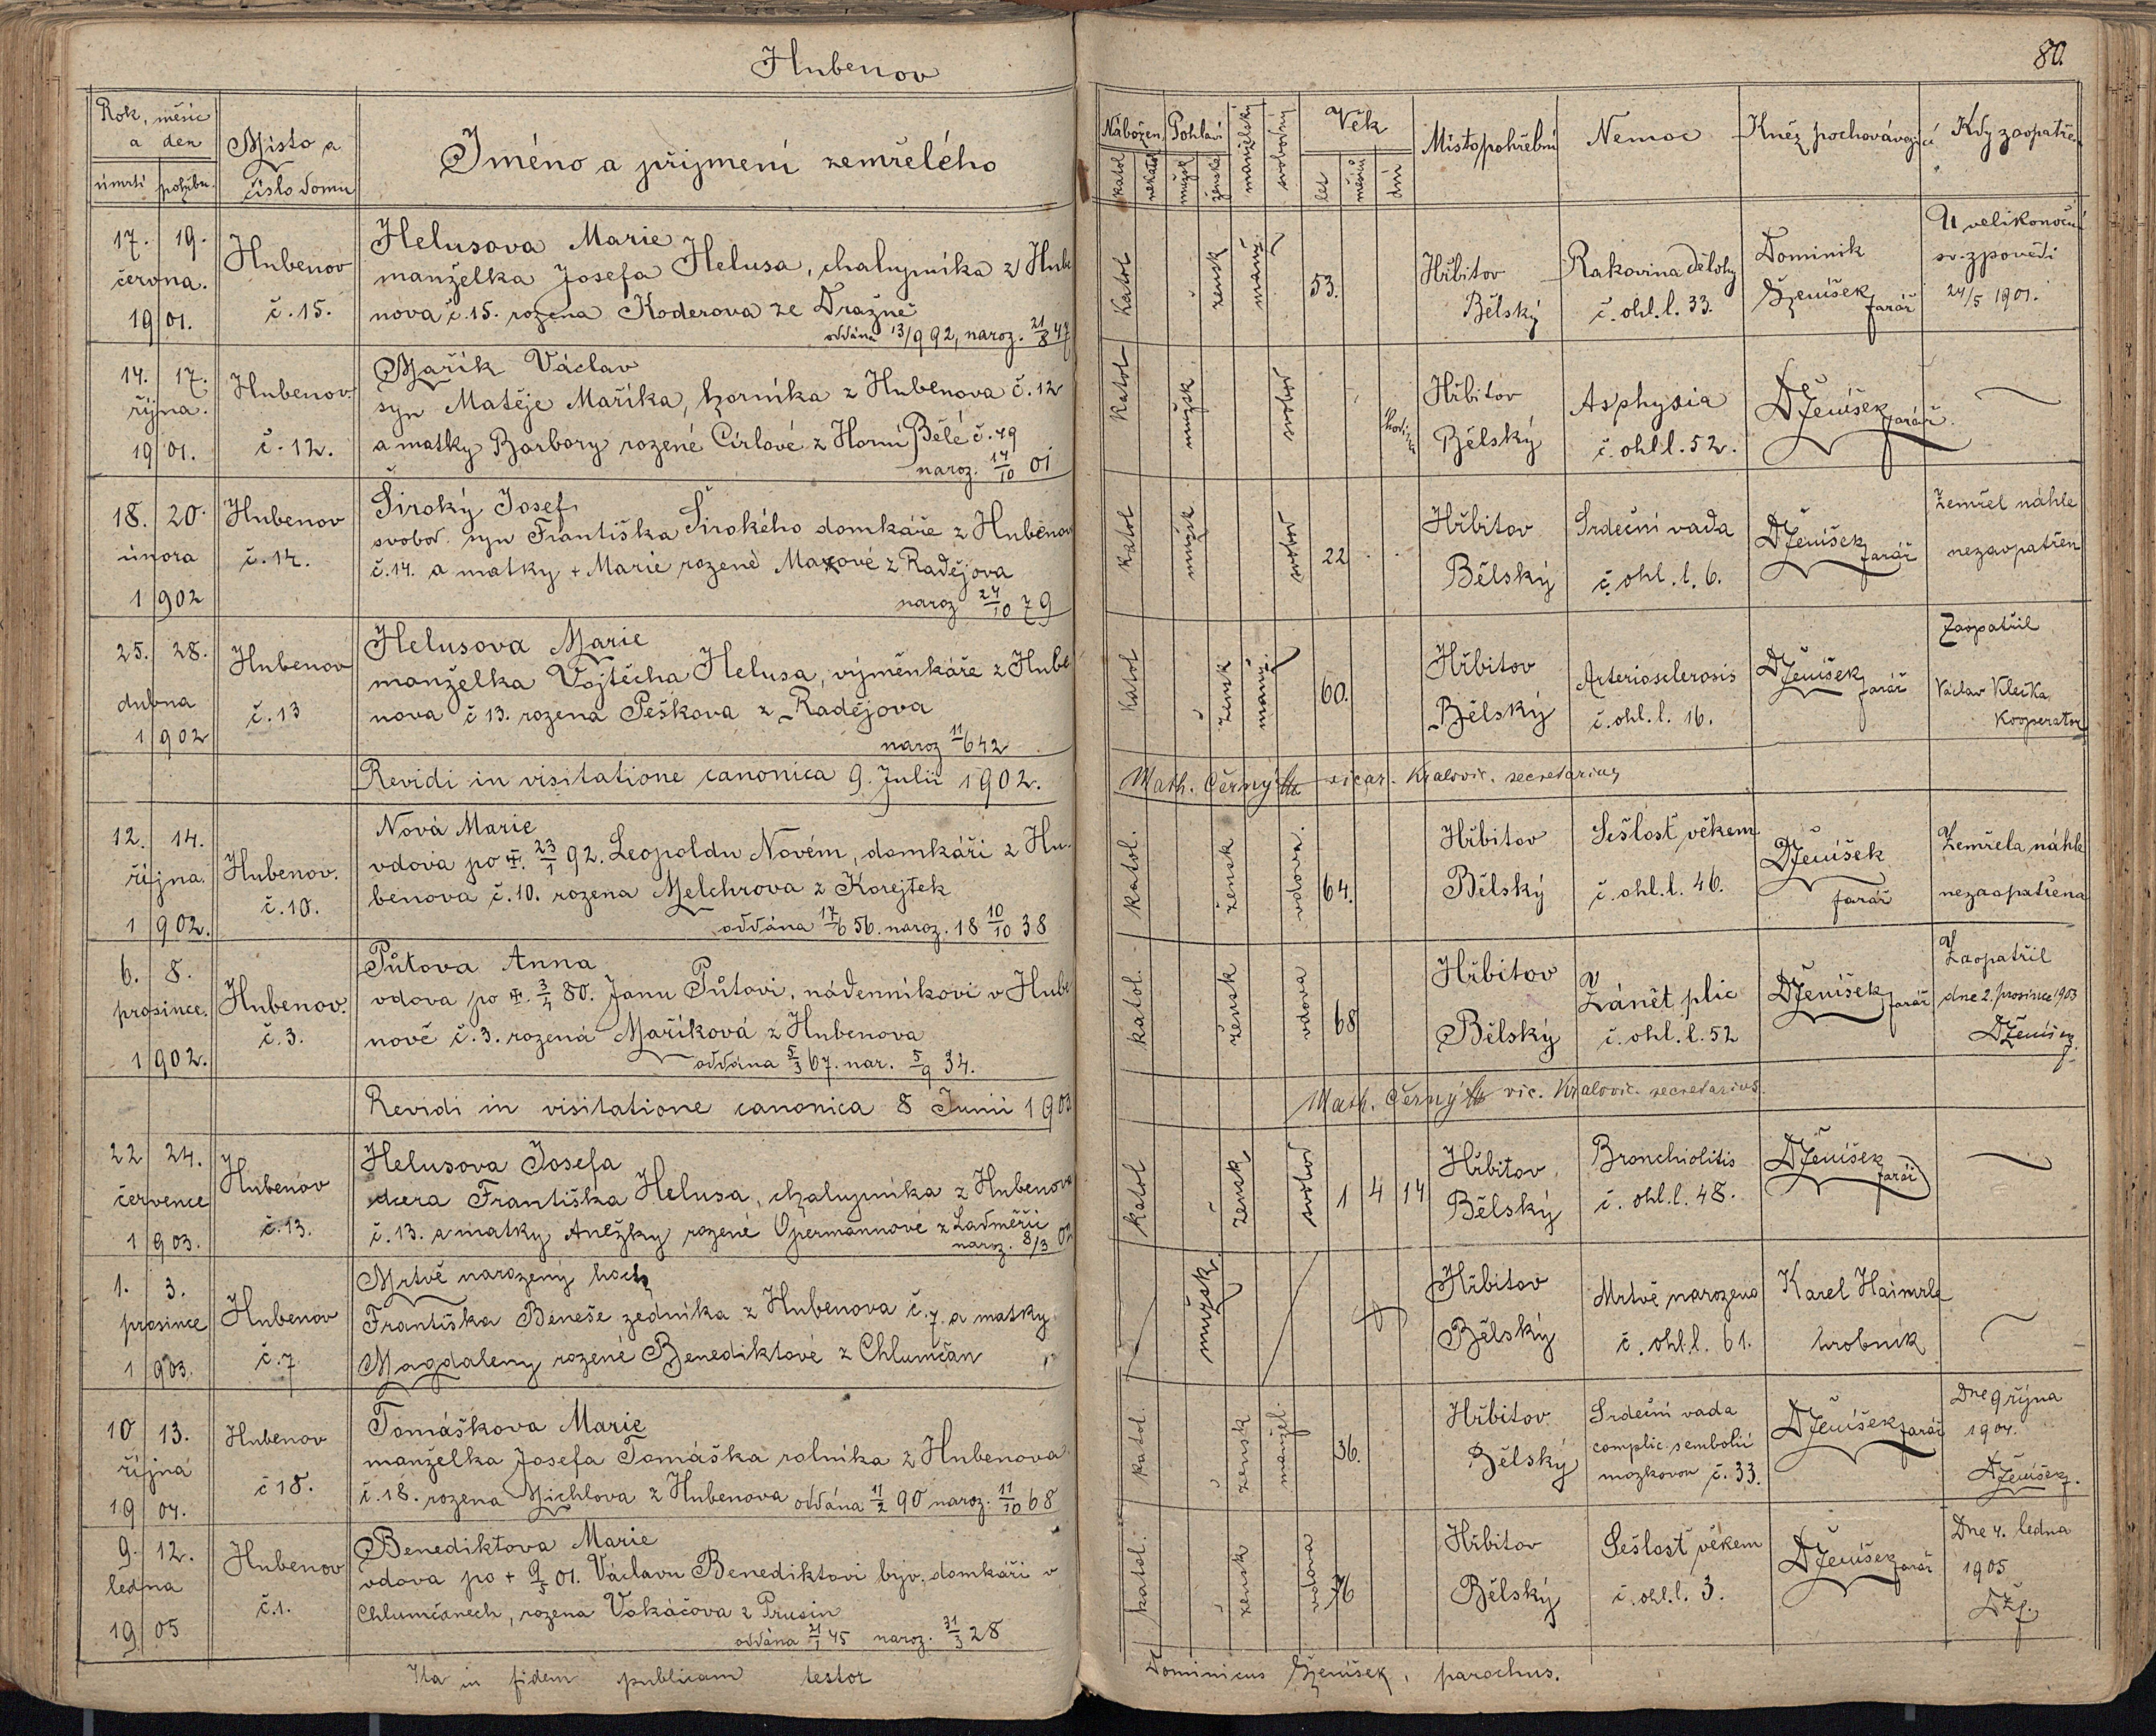 Hubenov
80.
Rok, měsíc
a den
úmrtí pohřbu.
Místo a
číslo domu
Jméno a příjmení zemřelého
Nábožen. Pohlaví
katol nekatol mužsk ženské manželský svobodný
Věk
let měsíců dní
Místo pohřební
Nemoc
Kněz pochovávající
Kdy zaopatřen
17. 19.
června.
19 01.
Hubenov
č. 15.
Helusova Marie
manželka Josefa Helusa, chalupníka z Hube
nova č. 15. rozena Koderova ze Dražně
oddána 13/9 92, naroz. 21/8 47
Katol žensk manž. 53.
Hřbitov
Bělský
Rakovina dělohy
č. ohl. l. 33.
Dominik
Ženíšek farář
U velikonoční
sv. zpovědi
24/5 1901.
14. 17.
října.
19 01.
Hubenov.
č. 12.
Mařík Václav
syn Matěje Maříka, horníka z Hubenova č. 12
a matky Barbory rozené Cirlové z Horní Bělé č. 49
naroz. 14/10 01
Katol mužsk svobod
Hřbitov
Bělský
Asphysia
č. ohl l. 52.
DŽeníšek farář.
18. 20.
února
1 902
Hubenov
č. 14.
Široký Josef
svobod. syn Františka Širokého domkáře z Hubenov
č. 14. a matky + Marie rozené Maxové z Radějova
naroz 24/10 79
katol mužsk svobod 22
Hřbitov
Bělský
Srdeční vada
č. ohl. l. 6.
DŽeníšek farář
Zemřel náhle
nezaopatřen
25. 28.
dubna
1 902
Hubenov
č. 13
Helusova Marie
manželka Vojtěcha Helusa, výměnkáře z Hube
nova č 13. rozena Peškova z Radějova
naroz 11/6 42
Katol žensk manž. 60.
Hřbitov
Bělský
Arteriosclerosis
č. ohl. l. 16.
DŽeníšek farář
Zaopatřil
Václav Kleika
Kooperator
Revidi in visitatione canonica 9. Julii 1902.
Math. Černý vicar. Kralovic. secretarius
12. 14.
října.
1 902.
Hubenov.
č. 10.
Nová Marie
vdova po 23/1 92. Leopoldu Novém, domkáři z Hu-
benova č. 10. rozena Melchrova z Korejtek
oddána 17/6 56. naroz. 18 10/10 38
katol. žensk vdova. 64.
Hřbitov
Bělský
Sešlost věkem
č. ohl. l. 46.
DŽeníšek
farář
Zemřela náhle
nezaopatřena
6. 8.
prosince.
1 902.
Hubenov.
č. 3.
Půtova Anna
vdova po 3/4 80. Janu Půtovi, nádenníkovi v Hube
nově č. 3. rozená Maříková z Hubenova
oddána 5/3 67. nar. 5/9 34.
katol. žensk vdova 68
Hřbitov
Bělský
Zánět plic
č. ohl. l. 52
DŽeníšek farář
Zaopatřil
dne 2. prosince 1903
DŽenišek
Revidi in visitatione canonica 8 Junii 1903
Math. Černý vic. Kralovic. secretarius.
22 24.
července
1 903.
Hubenov
č. 13.
Helusova Josefa
dcera Františka Helusa, chalupníka z Hubenova
č. 13. a matky Anežky rozené Opermannové z Ladměřic
naroz. 8/3 02
katol žensk svobod 1 4 14
Hřbitov
Bělský
Bronchiolitis
č. ohl. l. 48.
DŽeníšek farář
1. 3.
prosince
1 903.
Hubenov
č. 7
Mrtvě narozený hoch
Františka Beneše zedníka z Hubenova č. 7. a matky
Magdaleny rozené Benediktové z Chlumčan
mužsk.
Hřbitov
Bělský
Mrtvě narozeno
č. ohl. l. 61.
Karel Haimrle
hrobník
10 13.
října
19 04.
Hubenov
č 18.
Tomáškova Marie
manželka Josefa Tomáška rolníka z Hubenova
č. 18. rozena Michlova z Hubenova oddána 11/2 90 naroz. 11/10 68
katol. žensk manžel. 36.
Hřbitov.
Bělský
Srdeční vada
complic. sembolií
mozkovou č. 33.
DŽenišek farář
Dne 9 října
1904.
DŽenišek.
9. 12.
ledna
19 05
Hubenov
č. 1.
Benediktova Marie
vdova po + 9/5 01. Václavu Benediktovi býv. domkáři v
Chlumčanech, rozena Vokáčova z Prusin
oddána 21/1 45 naroz. 31/3 28
katol. žensk vdova 76
Hřbitov
Bělský
Sešlost věkem
č. ohl. l. 3.
DŽenišek farář
Dne 4. ledna
1905
DŽf.
Ita in fidem publicam testor
Dominicus Ženíšek, parochus.